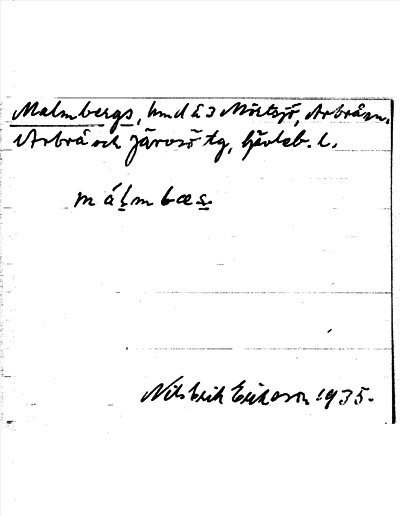 Malmbergs, hmd å 3 Mörtsjö, Arbrå sn,
Arbrå och Järvsö tg, Gävleb. l.
málmbæs.
Nils Erik Erikson 1935.